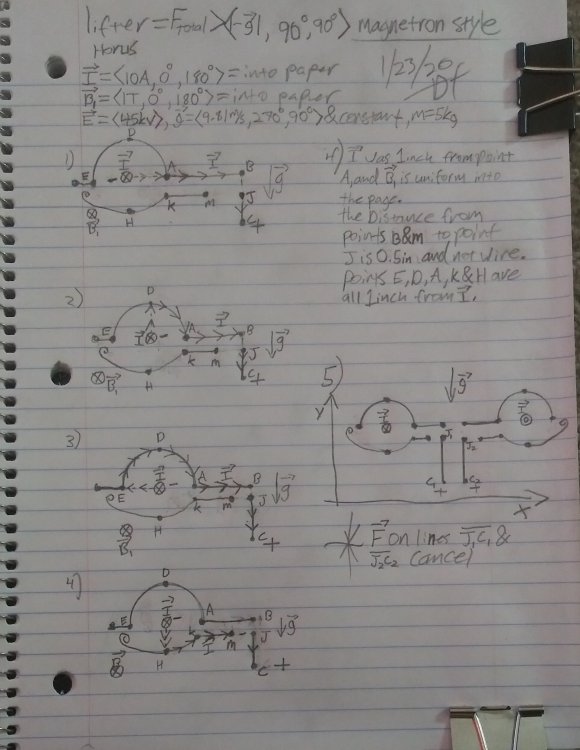 lifter = F⃗Total > ⟨|-g⃗|, 90°, 90°⟩ magnetron style
Horus
I⃗ = ⟨10A, 0°, 180°⟩ = into paper
B⃗₁ = ⟨1T, 0°, 180°⟩ = into paper
E⃗ = ⟨45kV⟩, g⃗ = ⟨9.81m/s, 270°, 90°⟩ & constant, m=5kg
1/23/20
DF
1)
D
E I⃗ A I⃗ B
K m J
B⃗₁ H C+
↓g⃗
if) I⃗ was 1inch from point
A, and B⃗₁ is uniform into
the page.
the Distance from
points B&m to point
J is 0.5in and not wire.
points E, D, A, K & H are
all 1inch from I⃗.
2)
D
E I⃗ - A I⃗ B
K m J
B⃗₁ H C+
↓g⃗
3)
D
E I⃗ A I⃗ B
K m J
B⃗₁ H C+
↓g⃗
4)
D
E I⃗ - A B
K I⃗ m J
B⃗ H C+
↓g⃗
5)
↓g⃗
Y
I⃗ I⃗
J₁ J₂
C₁+ C₂+
X
F⃗ on lines J₁C₁ &
J₂C₂ cancel